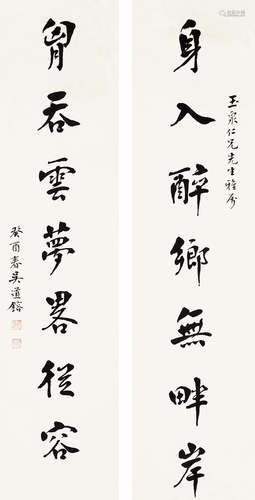 玉泉仁兄先生雅屬
身入醉鄉無畔岸
胷吞雲夢畧從容
癸酉春吳道鎔